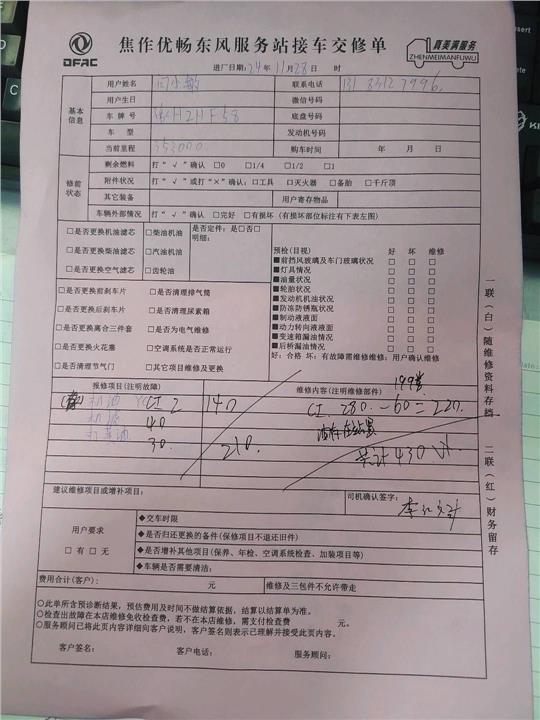 DFAC
焦作优畅东风服务站接车交修单
真美满服务
ZHENMEIMANFUWU
进厂日期:24年11月28日 时
基本信息
用户姓名 闫小敏 联系电话
用户生日 微信号码
车牌号 底盘号码
车型 发动机号码
当前里程 353000 购车时间 年 月 日
修前状态
剩余燃料 打“√”确认 □0 □1/4 □1/2 □1
附件状况 打“√”或打“×”确认:□工具 □灭火器 □备胎 □千斤顶
其它装备 用户寄存物品
车辆外部情况 打“√”确认 □完好 □有损坏 (有损坏部位标注有下表左图)
□是否更换机油滤芯 □柴油机油 是否定件:是□否□
明细:
□是否更换柴油滤芯 □汽油机油
□是否更换空气滤芯 □齿轮油
预检(目视) 好 坏 维修
■前挡风玻璃及车门玻璃状况 □ □ □
■灯具情况 □ □ □
■油量状况 □ □ □
■轮胎状况 □ □ □
■发动机机油状况 □ □ □
■防冻防锈瓶状况 □ □ □
■制动液液面 □ □ □
■动力转向液液面 □ □ □
■变速箱漏油情况 □ □ □
■后桥漏油情况 □ □ □
好:合格 坏:有故障需维修维修:用户确认维修
□是否更换前刹车片 □是否清理排气筒
□是否更换后刹车片 □是否清理尿素箱
□是否更换离合三件套 □是否为电气维修
□是否更换火花塞 □空调系统是否正常运行
□是否清理节气门 □其它项目维修及更换
报修项目(注明故障) 维修内容(注明维修部件)
机油 CI 2 140 CI 280. -60=220.
机滤 40
30. 210. 共计430
建议维修项目或增补项目: 司机确认签字:
用户要求
□有 □无
◆交车时限
◆是否归还更换的备件(保修项目不退还旧件)
◆是否增补其他项目(保养、年检、空调系统检查、加装项目等)
◆车辆是否需要清洁:
费用合计(客户): 元 维修及三包件不允许带走
○此单所含预诊断结果,预估费用及时间不做结算依据,结算以结算单为准。
○检查出故障在本店维修免收检查费,若不在本店维修,需支付检查费 元。
○服务顾问已将此页内容详细向客户说明,客户签名则表示已理解并接受此页内容。
客户签名: 客户电话: 服务顾问:
一联(白)随维修资料存档 二联(红)财务留存